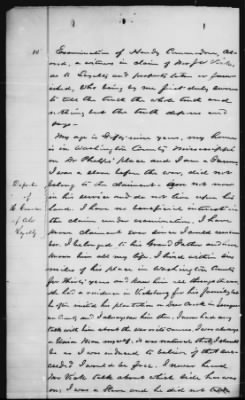 Examination of Handy Cummandore, Colo
red, a witness in claim of
as to Loyalty and property taken or furni
shed, who being by me first duly sworn
to tell the truth the whole truth and
nothing but the truth deposes and
says.
My age is fifty nine years, my home
is in Washington County Mississippi
on Dr Phelps' place and I am a
I was a slave before the war, did not
belong to the claimant am not now
in his service and do not live upon his
land. I have no beneficial interest in
the claim under examination. I have
known claimant ever since I could remem
ber. I belonged to his Grand Father and have
known him all my life. I lived within
miles of his place in Washington County
for thirty years and knew him all through
He had a residence in Vicksburg for his family but
he often visited his plantation on Deer Creek in
County and I always saw him then. I never had any
talk with him about the war or its causes. I was always
a Union Man myself. It was natural that I should
be as I was induced to believe if that
I would be free. I never heard
Mr Vick talk about which side he was
on. I was a slave and he did not talk